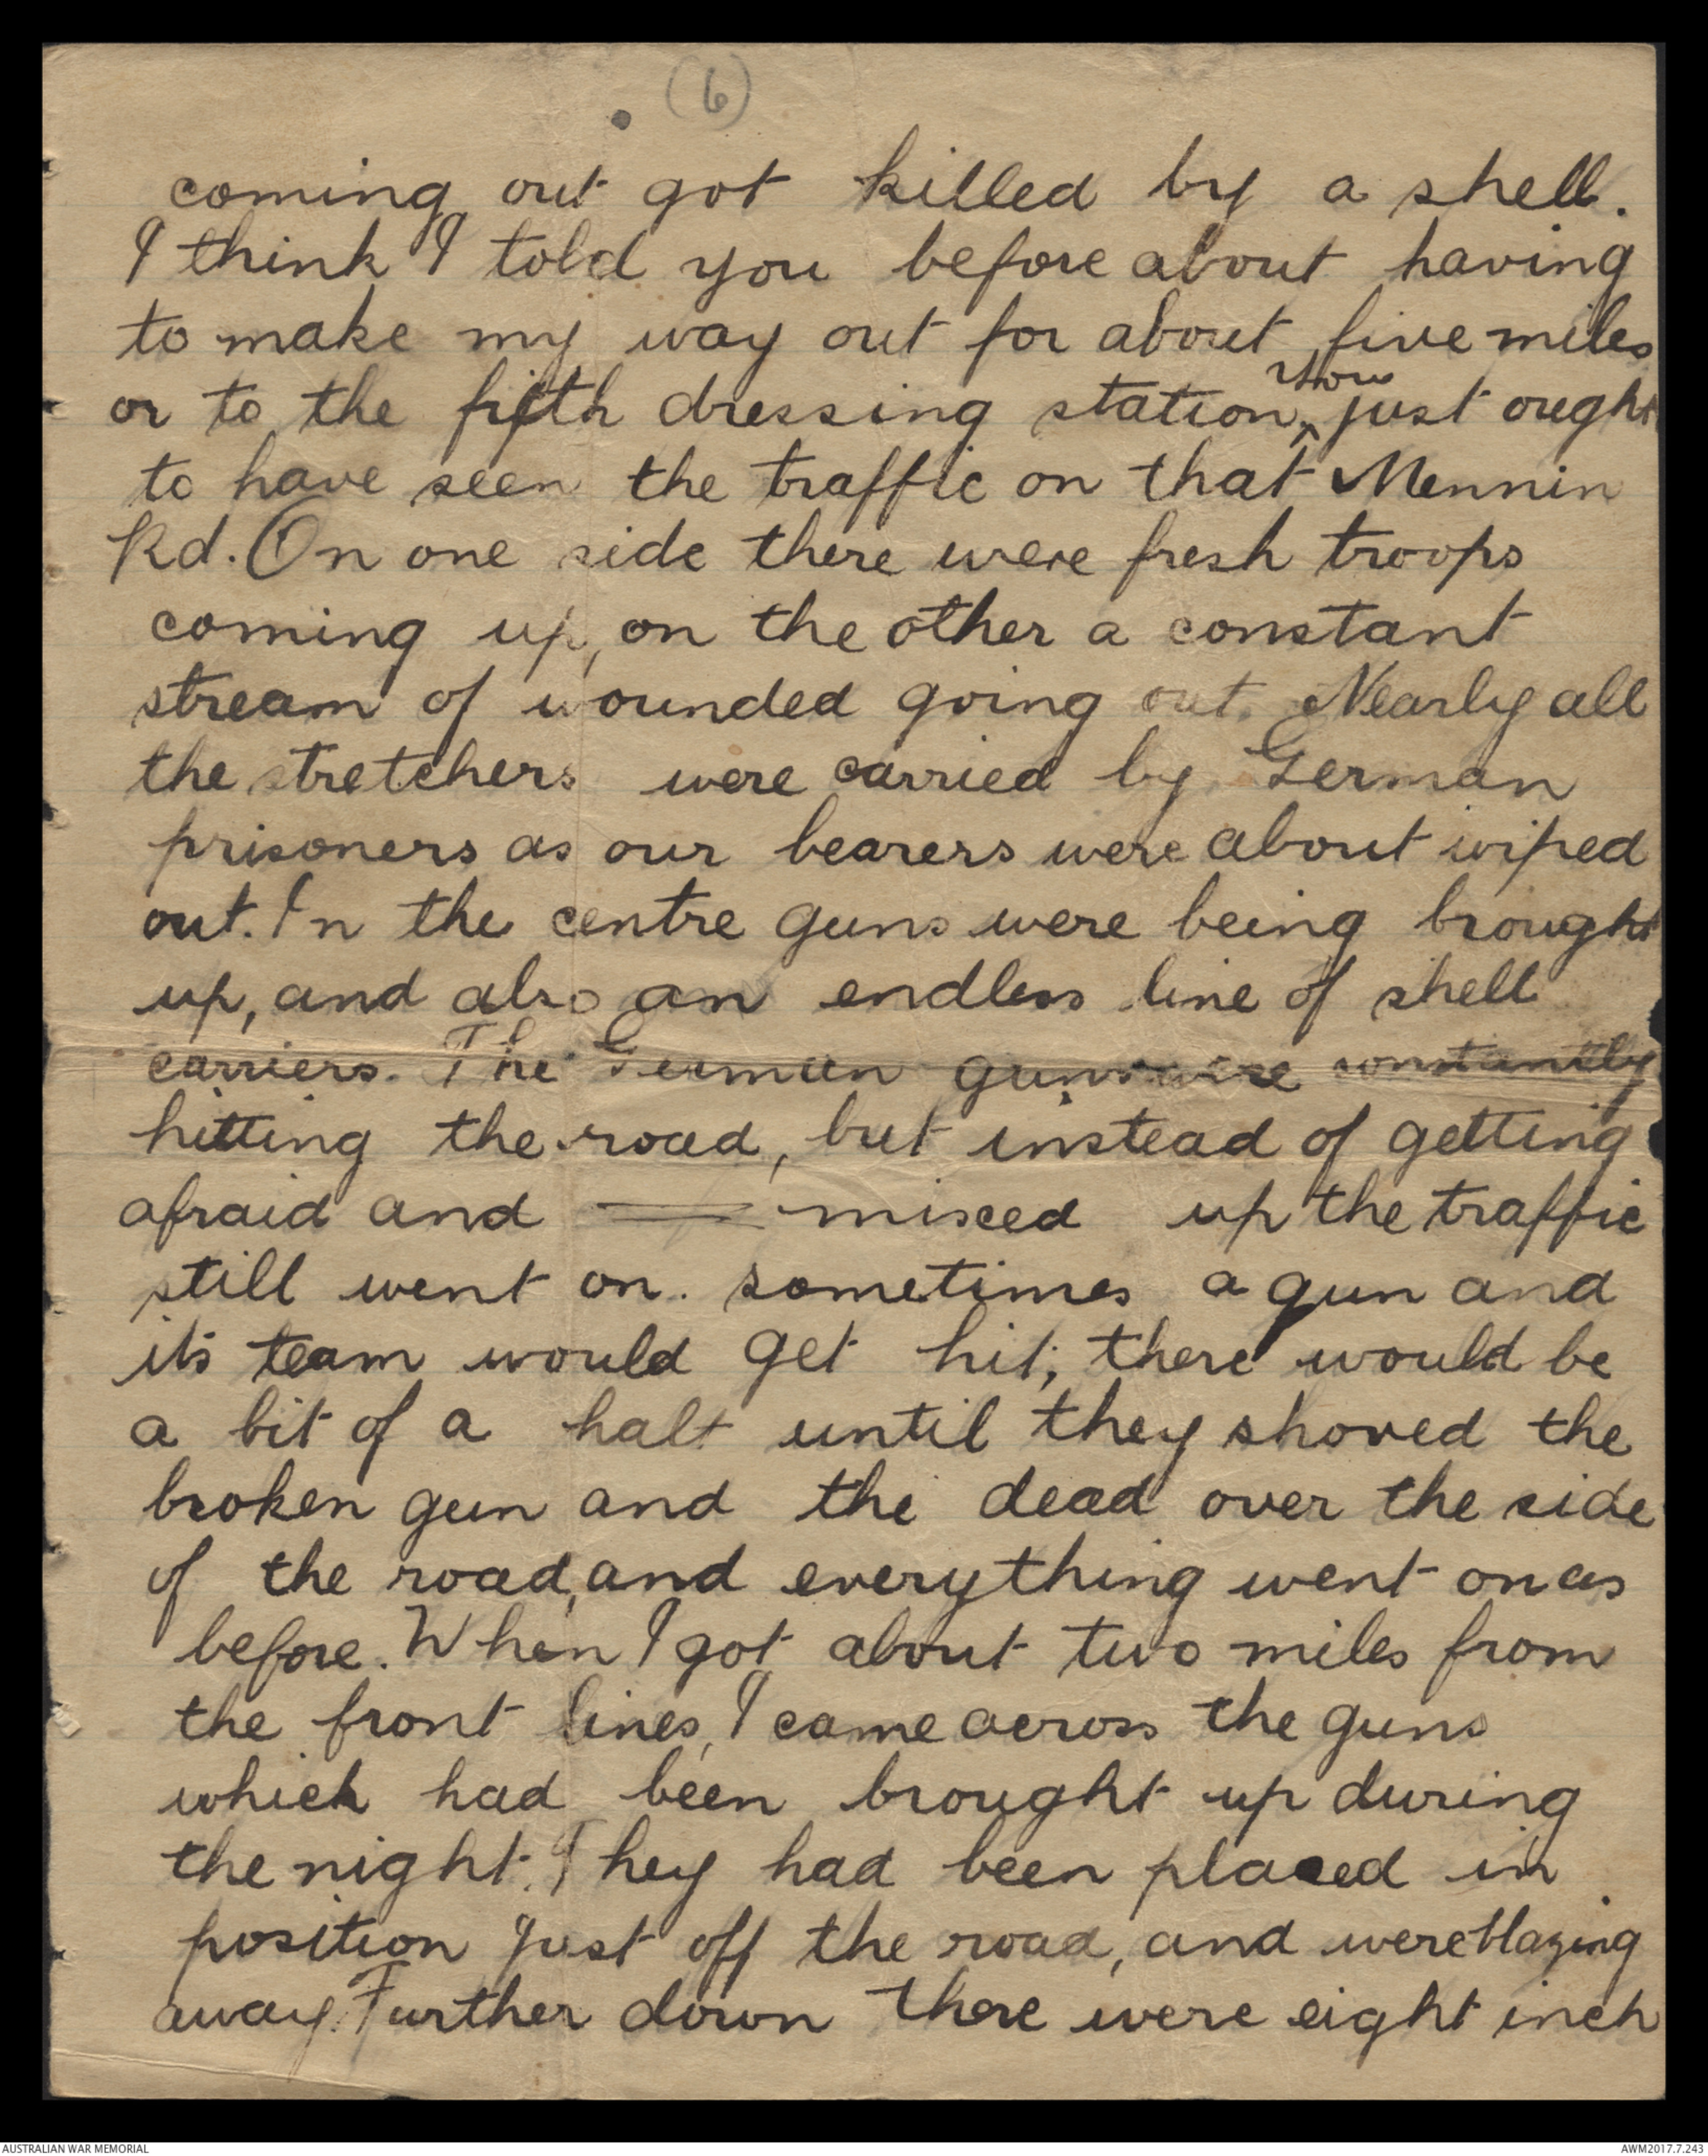 (6)
coming out got killed by a shell.
I think I told you before about having
to make my way out for about five miles
or to the fifth dressing station, you just ought
to have seen the traffic on that Mennin
Rd. On one side there were fresh troops
coming up, on the other a constant
stream of wounded going out. Nearly all
the stretchers were carried by German
prisoners as our bearers were about wiped
out. In the centre guns were being brought
up, and also an endless line of shell
carriers. The German guns were constantly
hitting the road, but instead of getting
afraid and mixed up the traffic
still went on. sometimes a gun and
its team would get hit, there would be
a bit of a halt until they shoved the
broken gun and the dead over the side
of the road, and everything went on as
before. When I got about two miles from
the front lines, I came across the guns
which had been brought up during
the night. They had been placed in
position just off the road, and were blazing
away. Further down there were eight inch
AUSTRALIAN WAR MEMORIAL
AWM2017.7.243